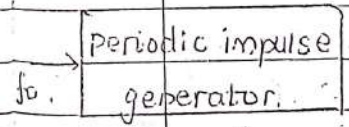 periodic impulse
fo. generator.